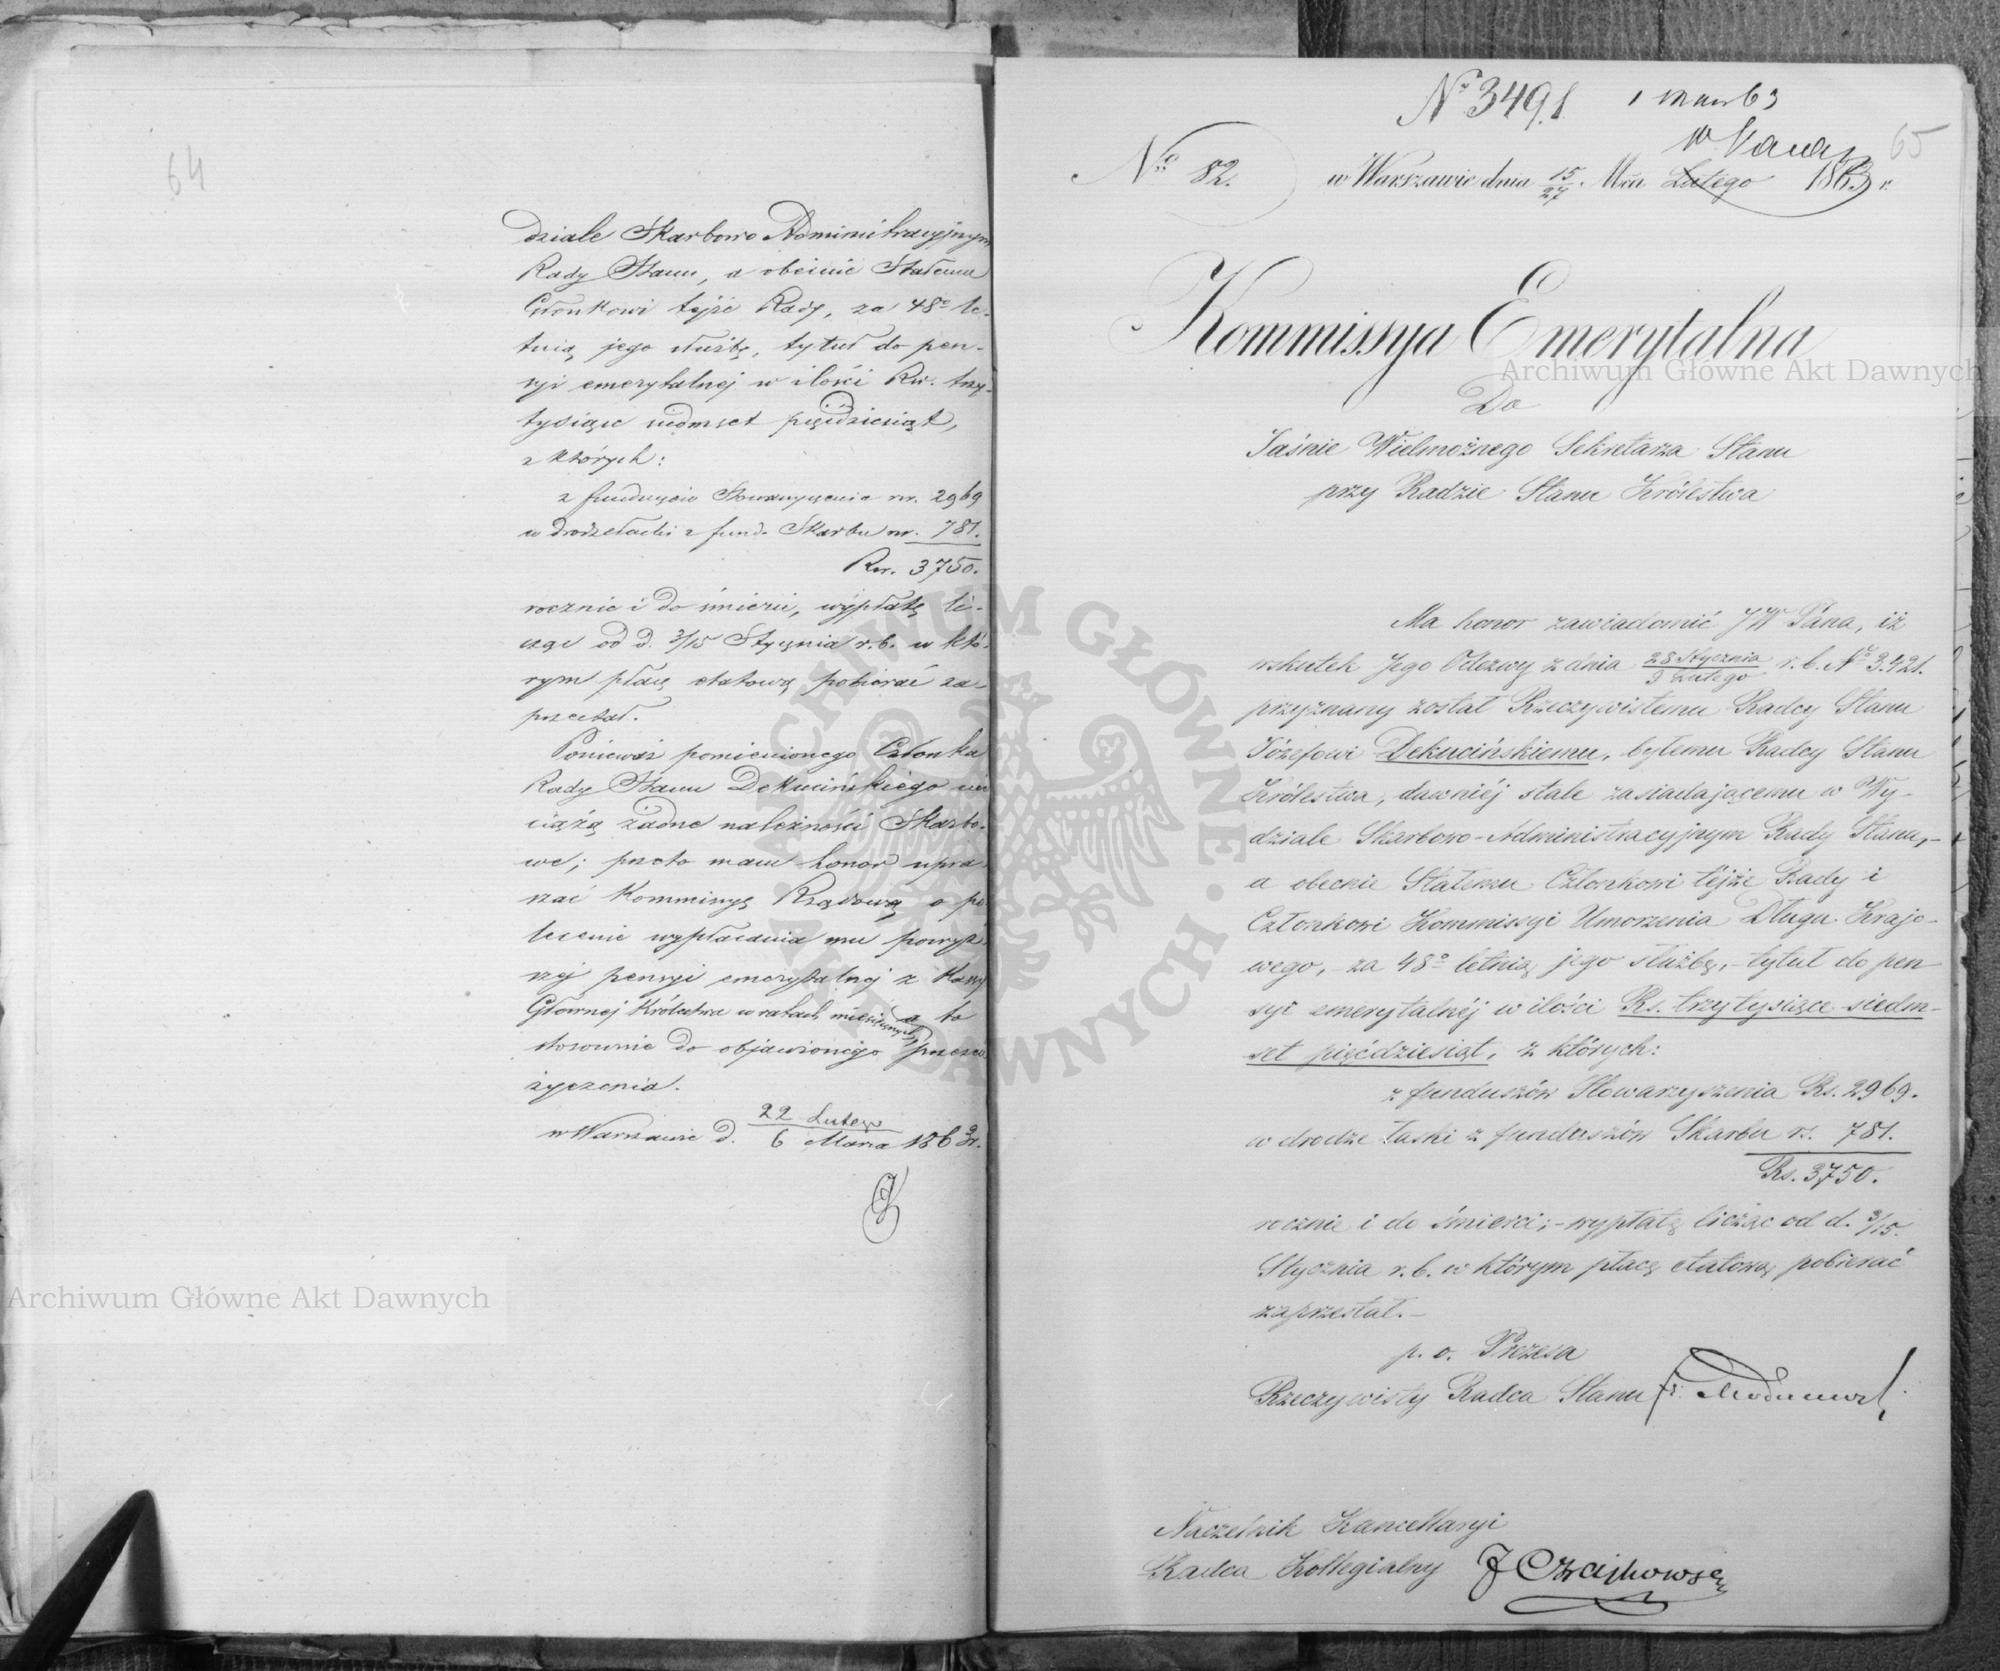 64
dziale Skarbowo Administracyjnym
Rady Stanu, a obecnie Stałemu
Członkowi tejże Rady, za 48o le-
tnią jego służbę, tytuł do pen-
syi emerytalnej w ilości Rsr. trzy-
tysiące siedmset pięćdziesiąt,
z których:
z funduszów Stowarzyszenia rsr. 2969
w drodze łaski z fund. Skarbu rsr. 781.
Rsr. 3750.
rocznie i do śmierci, wypłatę li-
cząc od d. 3/15 Stycznia r. b. w któ-
rym płacę etatową pobierać za-
przestał.
Ponieważ pomienionego Członka
Rady Stanu Dekucińskiego nie
ciążą żadne należności Skarbo-
we; przeto mam honor upra-
szać Kommissyę Rządową o po
lecenie wypłacania mu powyż-
szej pensyi emerytalnej z Kassy
Głównej Królestwa w ratach miesięcznych, a to
stosownie do objawionego przezeń
życzenia.
w Warszawie d. 22 Lutego / 6 Marca 1863 r.
No 3491 1 63
65
No 82. w Warszawie dnia 15/27 Mca Lutego 1863 r.
Kommissya Emerytalna
Do
Jaśnie Wielmożnego Sekretarza Stanu
przy Radzie Stanu Królestwa
Ma honor zawiadomić JW Pana, iż
wskutek Jego Odezwy z dnia 28 Stycznia / 9 Lutego r. b. No 3.421.
przyznany został Rzeczywistemu Radcy Stanu
Józefowi Dekucińskiemu, byłemu Radcy Stanu
Królestwa, dawniéj stale zasiadającemu w Wy-
dziale Skarbowo-Administracyjnym Rady Stanu,-
a obecnie Stałemu Członkowi tejże Rady i
Członkowi Kommissyi Umorzenia Długu Krajo-
wego, - za 48o letnią jego służbę, - tytuł do pen-
syi emerytalnéj w ilości Rs. trzytysiące siedm-
set pięćdziesiąt, z których:
z funduszów Stowarzyszenia Rs. 2969.
w drodze łaski z funduszów Skarbu rs. 781.
Rs. 3750.
rocznie i do śmierci; - wypłatę licząc od d. 3/15.
Stycznia r. b. w którym płacę etatową pobierać
zaprzestał. -
p. o. Prezesa
Rzeczywisty Radca Stanu
Naczelnik Kancellaryi
Radca Kollegialny J Czajkowski
Archiwum Główne Akt Dawnych
Archiwum Główne Akt Dawnych
ARCHIWUM GŁÓWNE AKT DAWNYCH